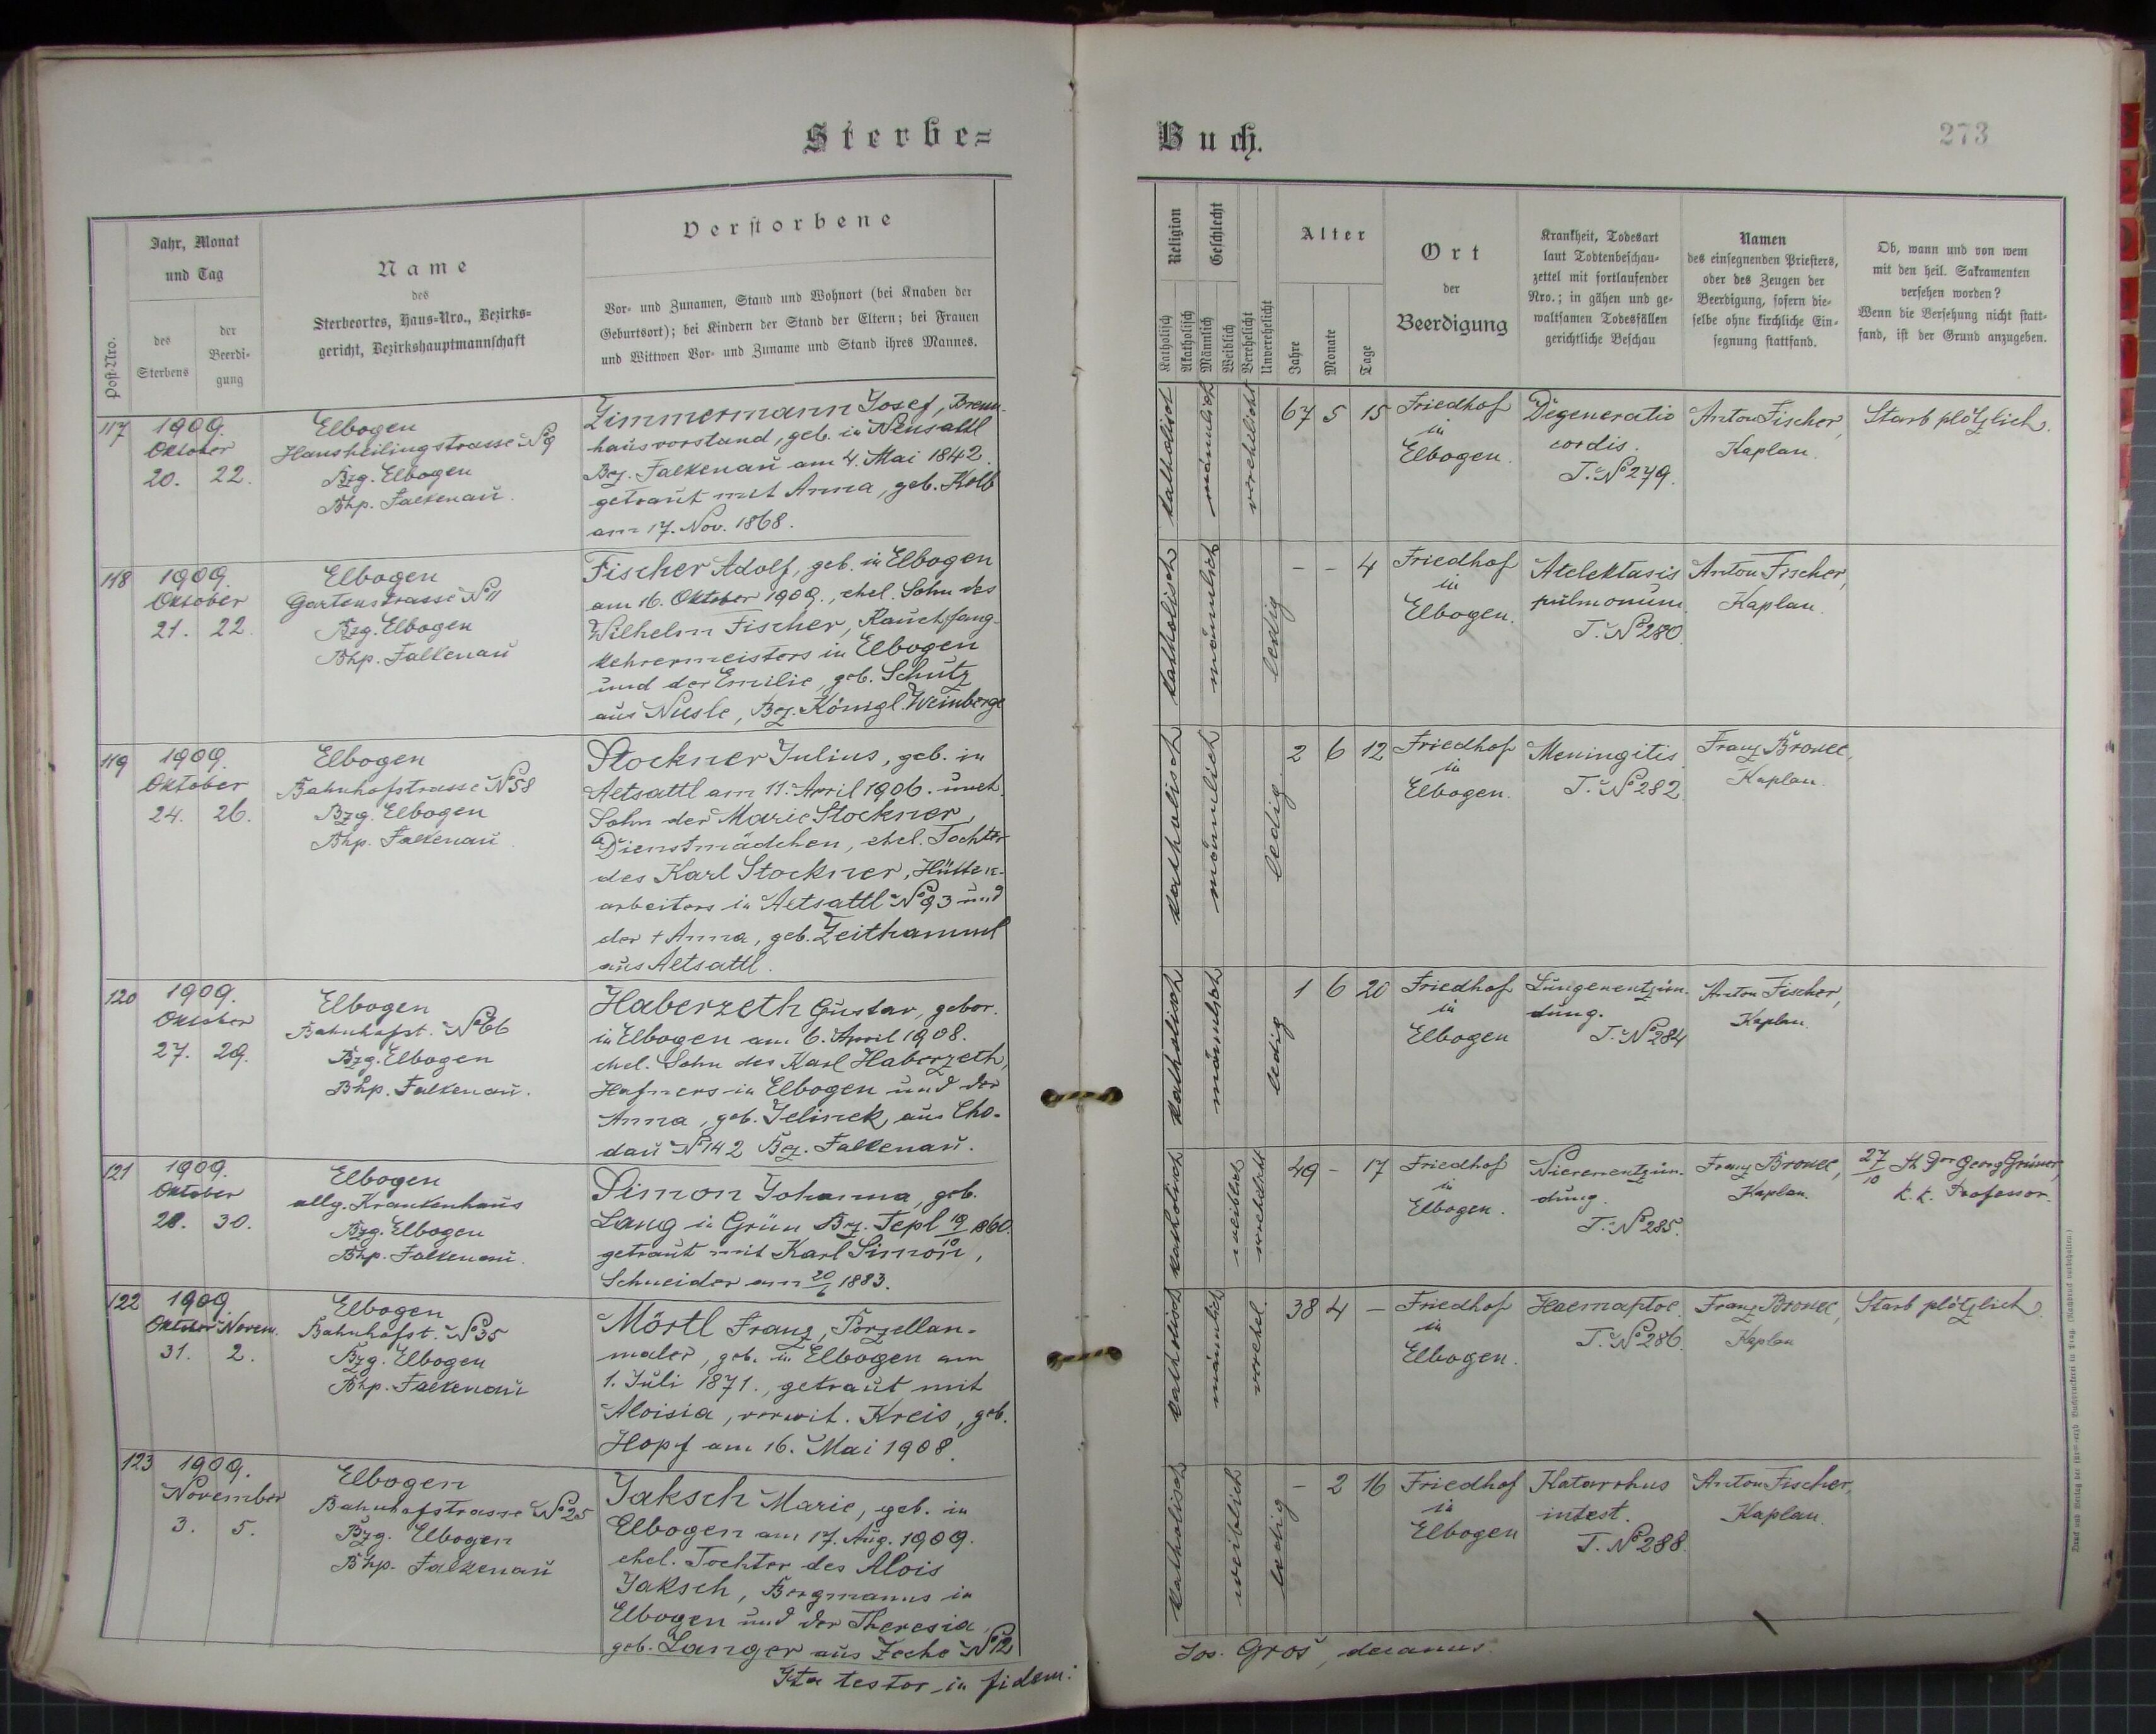 Sterbe=
Buch.
273
Post-Nro.
Jahr, Monat
und Tag
des
Sterbens
der
Beerdi-
gung
Name
des
Sterbeortes, Haus-Nro., Bezirks-
gericht, Bezirkshauptmannschaft
Verstorbene
Vor- und Zunamen, Stand und Wohnort (bei Knaben der
Geburtsort); bei Kindern der Stand der Eltern; bei Frauen
und Wittwen Vor- und Zuname und Stand ihres Mannes.
Religion
Katholisch
Akatholisch
Geschlecht
Männlich
Weiblich
Verehelicht
Unverehelicht
Alter
Jahre
Monate
Tage
Ort
der
Beerdigung
Krankheit, Todesart
laut Todtenbeschau-
zettel mit fortlaufender
Nro.; in gähen und ge-
waltsamen Todesfällen
gerichtliche Beschau
Namen
des einsegnenden Priesters,
oder des Zeugen der
Beerdigung, sofern die-
selbe ohne kirchliche Ein-
segnung stattfand.
Ob, wann und von wem
mit den heil. Sakramenten
versehen worden?
Wenn die Versehung nicht statt-
fand, ist der Grund anzugeben.
117
1909.
Oktober
20. 22.
Elbogen
Hansheilingstrasse No 9
Bzg. Elbogen
Bhp. Falkenau.
Zimmermann Josef, Brenn-
hausvorstand, geb. in Neusattl
Bez. Falkenau am 4. Mai 1842.
getraut mit Anna, geb. Kolb
am 17. Nov. 1868.
katholisch
männlich
verehelicht
67 5 15
Friedhof
in
Elbogen.
Degeneratio
cordis.
T. No 279.
Anton Fischer,
Kaplan.
Starb plötzlich.
118
1909.
Oktober
21. 22.
Elbogen
Gartenstrasse No 11
Bzg. Elbogen
Bhp. Falkenau
Fischer Adolf, geb. in Elbogen
am 16. Oktober 1909., ehel. Sohn des
Wilhelm Fischer, Rauchfang-
kehrermeisters in Elbogen
und der Emilie, geb. Schütz
aus Nusle, Bez. Königl. Weinberge
katholisch
männlich
ledig
- - 4
Friedhof
in
Elbogen.
Atelektasis
pulmonum.
T. No 280.
Anton Fischer,
Kaplan.
119
1909.
Oktober
24. 26.
Elbogen
Bahnhofstrasse No 58
Bzg. Elbogen
Bhp. Falkenau
Stockner Julius, geb. in
Altsattl am 11. April 1906. uneh.
Sohn der Marie Stockner
Dienstmädchen, ehel. Tochter
des Karl Stockner, Hütten-
arbeiters in Altsattl No 93 und
der † Anna, geb. Zeithamml
aus Altsattl.
katholisch
männlich
ledig.
2 6 12
Friedhof
in
Elbogen.
Meningitis
T. No 282.
Franz Brouec,
Kaplan.
120
1909.
Oktober
27. 29.
Elbogen
Bahnhofst. No 66
Bzg. Elbogen
Bhp. Falkenau.
Haberzeth Gustav, gebor.
in Elbogen am 6. April 1908.
ehel. Sohn des Karl Haberzeth,
Hafners in Elbogen und der
Anna, geb. Jelinek, aus Cho-
dau No 142 Bez. Falkenau.
katholisch
männlich
ledig
1 6 20
Friedhof
in
Elbogen
Lungenentzün-
dung.
T. No 284
Anton Fischer,
Kaplan.
121
1909.
Oktober
28. 30.
Elbogen
allg. Krankenhaus
Bzg. Elbogen
Bhp. Falkenau.
Simon Johanna, geb.
Lang in Grün Bez. Tepl 10/10 1860.
getraut mit Karl Simon,
Schneider am 20/6 1883.
katholisch
weiblich
verehelicht
49 - 17
Friedhof
in
Elbogen.
Nierenentzün-
dung.
T. No 285.
Franz Brouec,
Kaplan.
27/10 Georg Grüner,
k. k. Professor.
122
1909.
Oktober Novem.
31. 2.
Elbogen
Bahnhofst. No 35
Bzg. Elbogen
Bhp. Falkenau
Mörtl Franz, Porzellan-
maler, geb. in Elbogen am
1. Juli 1871., getraut mit
Aloisia, verwit. Kreis, geb.
Hopf am 16. Mai 1908.
katholisch
männlich
verehel.
38 4 -
Friedhof
in
Elbogen.
Haemaptoe.
T. No 286.
Franz Brouec,
Kaplan
Starb plötzlich.
123
1909.
November
3. 5.
Elbogen
Bahnhofstrasse No 25
Bzg. Elbogen
Bhp. Falkenau
Jaksch Marie, geb. in
Elbogen am 17. Aug. 1909.
ehel. Tochter des Alois
Jaksch, Bergmanns in
Elbogen und der Theresia,
geb. Langer aus Zeche No 12
katholisch
weiblich
ledig
- 2 16
Friedhof
in
Elbogen
Katarrhus
intest.
T. No 288.
Anton Fischer,
Kaplan.
Ita testor in fidem:
Jos. Groß, decanus.